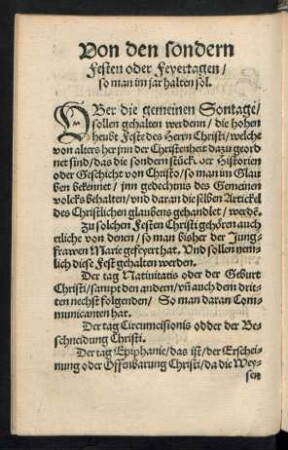 Von den sondern
Festen oder Feyertagen /
so man im jar halten sol.
UBer die gemeinen Sontage /
sollen gehalten werdenn / die hohen
heubt Feste des Herrn Christi / welche
von alters her jnn der Christenheit dazu geord
net sind / das die sondern stück der Historien
oder Geschicht von Christo / so man im Glau
ben bekennet / jnn gedechtnis des Gemeinen
volcks behalten / vnd daran die selben Artickel
des Christlichen glaubens gehandlet / werdē.
Zu solchen Festen Christi gehören auch
etliche von denen / so man bisher der Jung-
frawen Marie gefeyrt hat. Vnd sollen nem-
lich diese Fest gehalten werden.
Der tag Natiuitatis oder der Geburt
Christi / sampt den andern / vñ auch dem drit-
ten nechst folgenden / So man daran Com-
municanten hat.
Der tag Circumcisionis odder der Be-
schneidung Christi.
Der tag Epiphanie / das ist / der Erschei-
nung oder Offenbarung Christi / da die Wey-
sen